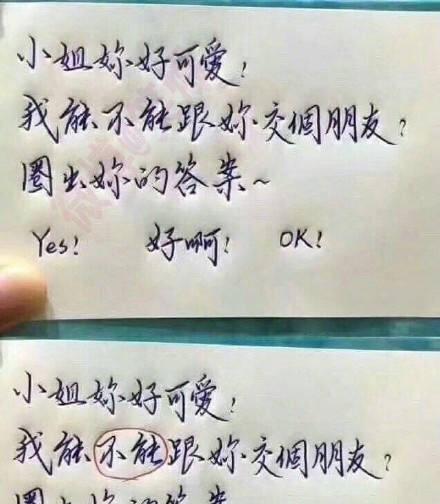 小姐妳好可愛！
我能不能跟妳交個朋友？
圈出妳的答案~
Yes! 好啊! OK!
小姐妳好可愛！
我能不能跟妳交個朋友？
圈出妳的答案